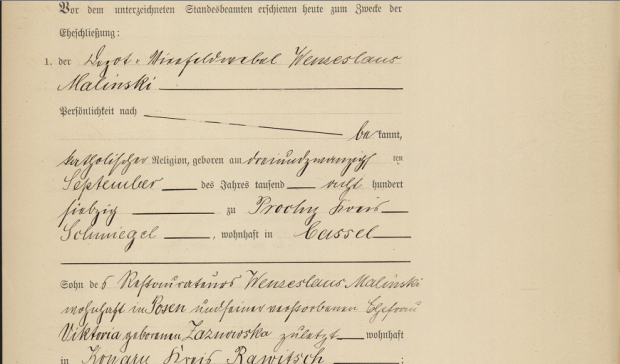 Vor dem unterzeichneten Standesbeamten erschienen heute zum Zwecke der
Eheschließung:
1. der Depot-Vizefeldwebel Wenzeslaus
Malinski
Persönlichkeit nach
bekannt,
katholischer Religion, geboren am dreiundzwanzigsten
September des Jahres tausend acht hundert
siebzig zu Prochy Kreis
Schmiegel, wohnhaft in Cassel
Sohn des Restaurateurs Wenzeslaus Malinski
wohnhaft in Posen und seiner verstorbenen Ehefrau
Viktoria geborenen Zaznowska zuletzt wohnhaft
in Kreis Rawitsch :